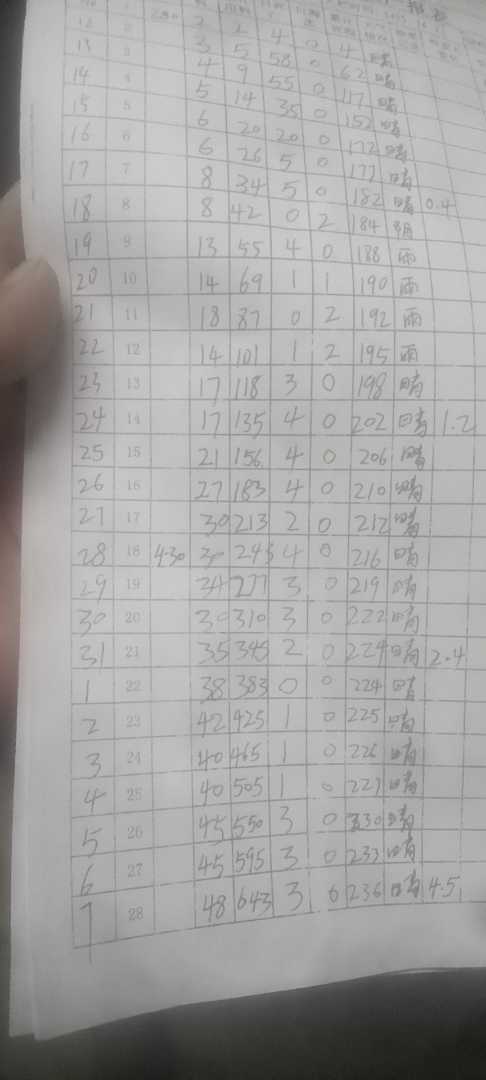 12 2 2 4 0 4 晴
13 3 5 58 0 62 晴
14 4 4 9 55 0 117 晴
15 5 5 14 35 0 152 晴
16 6 6 20 20 0 172 晴
17 7 6 26 5 0 177 晴
18 8 8 34 5 0 182 晴 0.4
19 9 8 42 0 2 184 阴
20 10 13 55 4 0 188 雨
21 11 14 69 1 1 190 雨
22 12 18 87 0 2 192 雨
23 13 14 101 1 2 195 雨
24 14 17 118 3 0 198 晴
25 15 17 135 4 0 202 晴 1.2
26 16 21 156 4 0 206 晴
27 17 27 183 4 0 210 晴
28 18 430 30 213 2 0 212 晴
29 19 30 243 4 0 216 晴
30 20 34 277 3 0 219 晴
31 21 30 310 3 0 222 晴
1 22 35 345 2 0 224 晴 2.4
2 23 38 383 0 0 224 晴
3 24 42 425 1 0 225 晴
4 25 40 465 1 0 226 晴
5 26 40 505 1 0 227 晴
6 27 45 550 3 0 230 晴
7 28 45 595 3 0 233 晴
48 643 3 0 236 晴 4.5